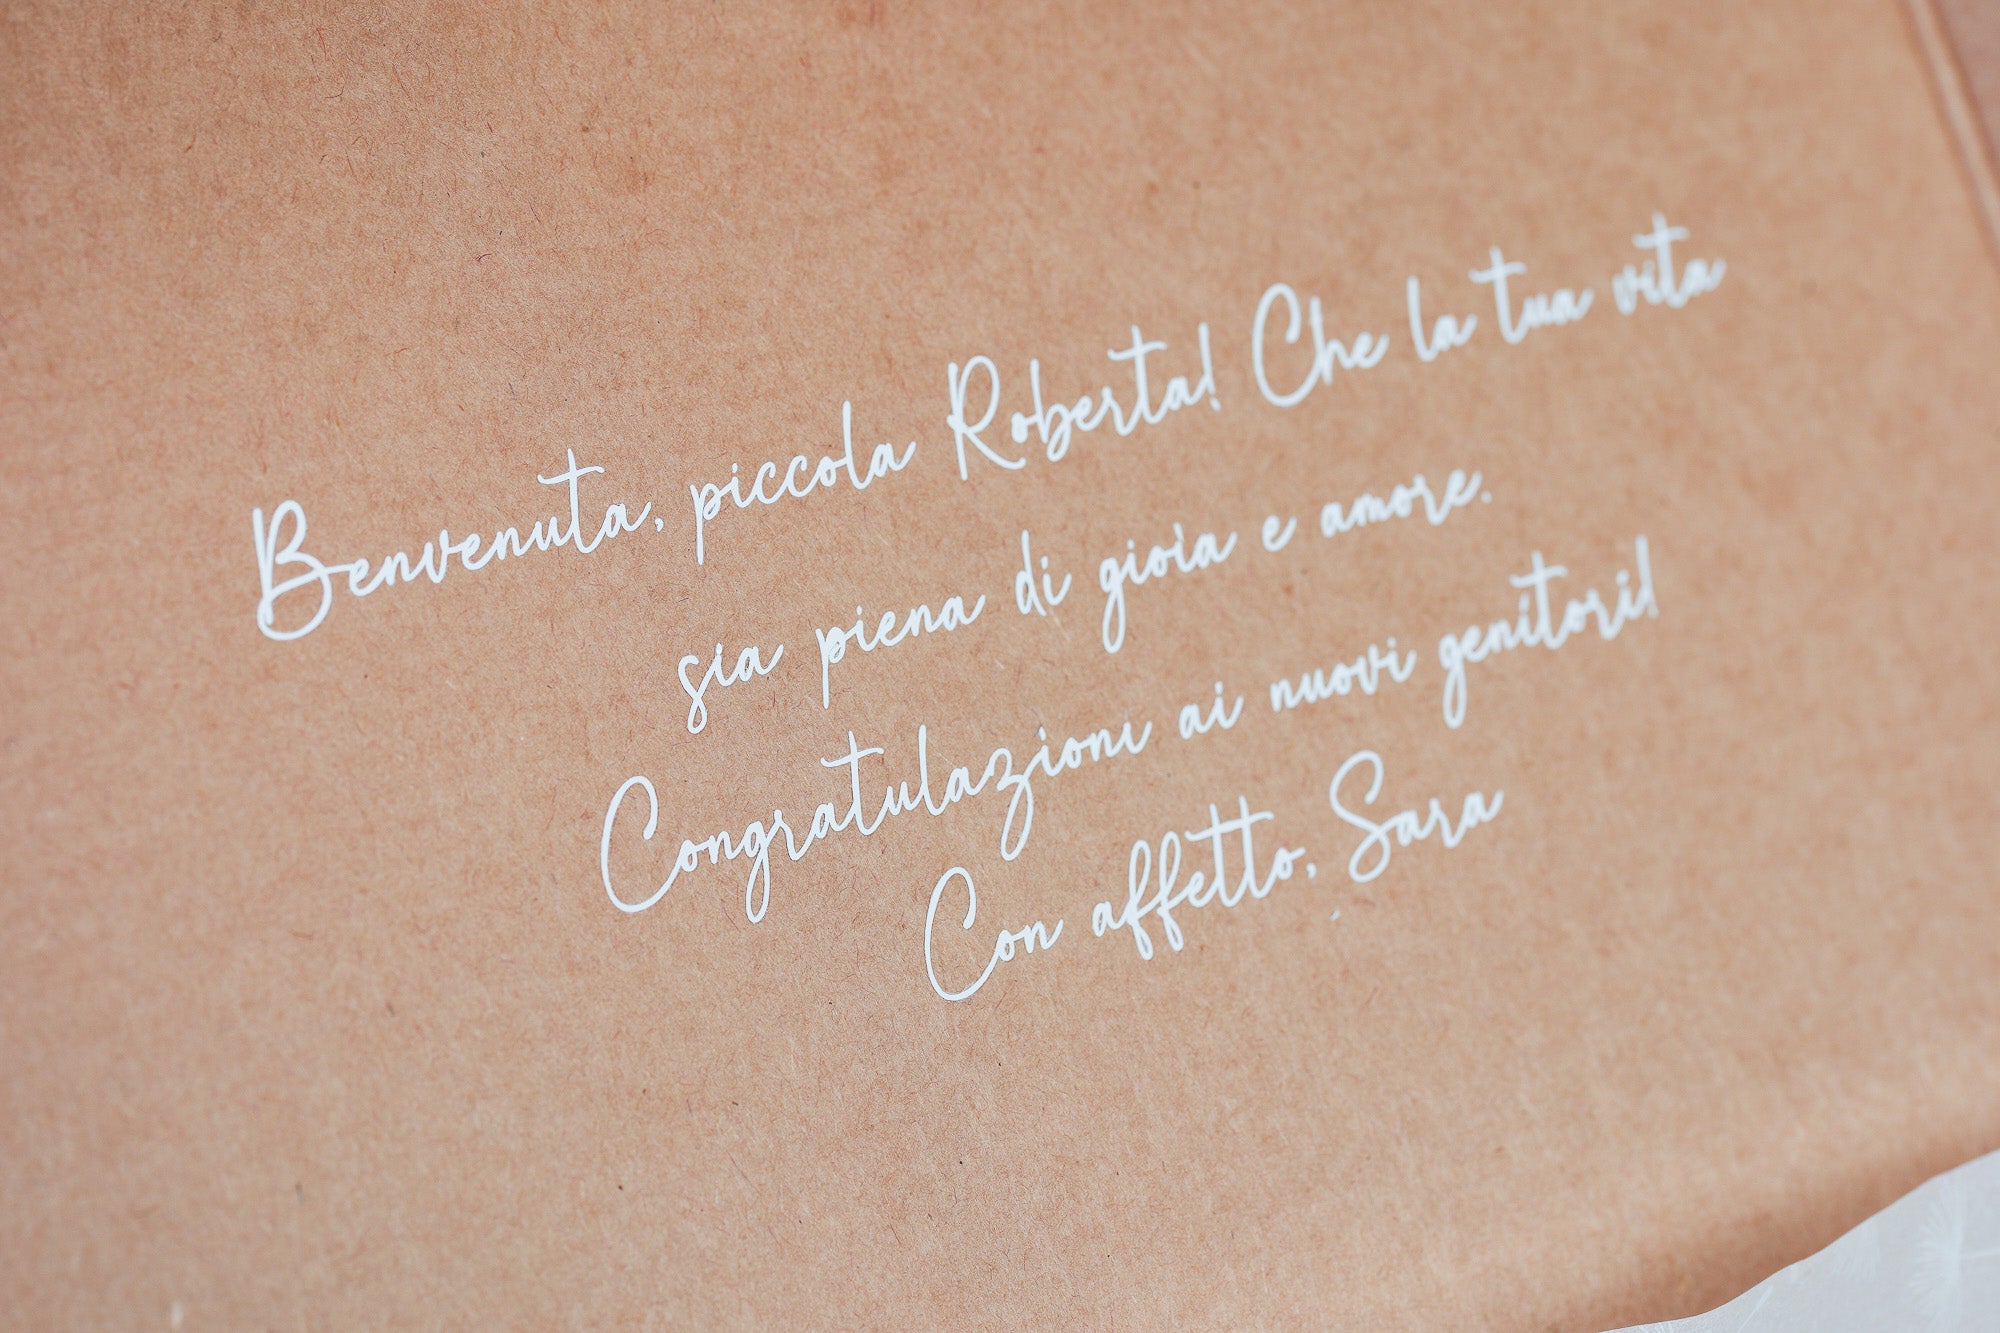 Benvenuta, piccola Roberta! Che la tua vita
sia piena di gioia e amore.
Congratulazioni ai nuovi genitori!
Con affetto, Sara